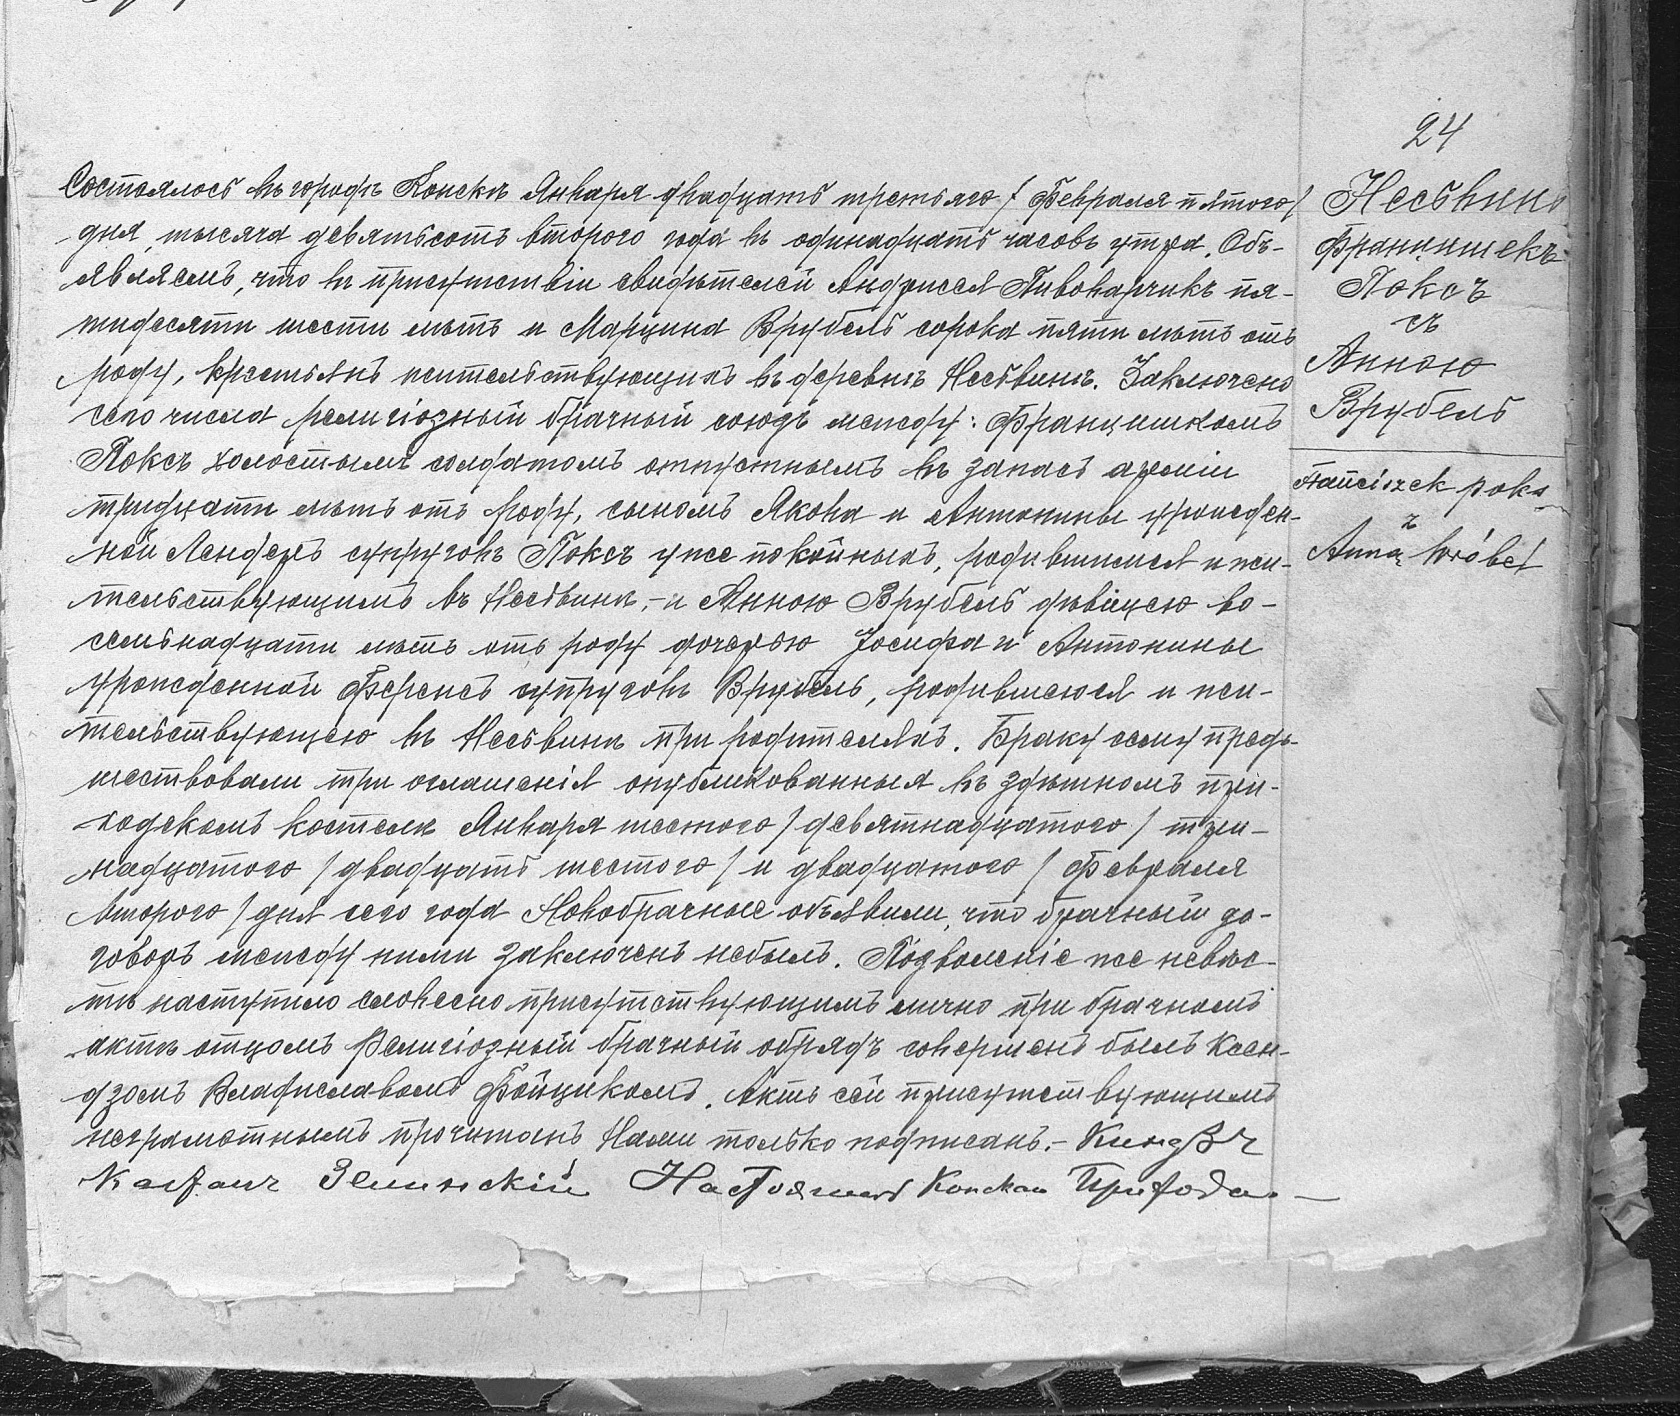 24
Несвинь
Францишекъ
Поксъ
съ
Анною
Врубель
Franciszek poks
z
Anną Wróbel
Состоялось въ городѣ Конскѣ Января двадцать третьяго / Февраля пятого /
дня, тысяча девятьсотъ второго года въ одинадцать часовъ утра. Объ-
являемъ, что въ присутствіи свидѣтелей Андршея Пивоварчикъ пя-
тидесяти шести лѣтъ и Марцина Врубель сорока пяти лѣтъ отъ
роду, крестьянъ жительствующихъ въ деревнѣ Несвинь. Заключено
сего числа религіозный брачный союзъ между: Францишкомъ
Поксъ холостымъ солдатомъ отпустнымъ въ запасъ арміи
тридцати лѣтъ отъ роду, сыномъ Якова и Антонины урожден-
ной Лендеръ супруговъ Поксъ уже покойныхъ, родившимся и жи-
тельствующимъ въ Несвинѣ, – и Анною Врубель дѣвицею во-
семьнадцати лѣтъ отъ роду дочерью Іосифа и Антонины
урожденной Ференсъ супруговъ Врубель, родившеюся и жи-
тельствующею въ Несвинѣ при родителяхъ. Браку сему пред-
шествовали три оглашенія опубликованныя въ здѣшномъ при-
ходскомъ костелѣ Января шестого / девятнадцатого / три-
надцатого / двадцать шестого / и двадцатого / Февраля
второго / дня сего года Новобрачные объявили, что брачный до-
говоръ между ними заключенъ небылъ. Позволеніе же невѣс-
тѣ наступило словесно присутствующимъ лично при брачномъ
актѣ отцомъ Религіозный брачный обрядъ совершенъ былъ Ксен-
дзомъ Владиславомъ Фойцикомъ. Актъ сей присутствующимъ
неграмотнымъ прочитанъ Нами только подписанъ. – Ксендзъ
Зелинскій Настоятель Конскаго Прихода. –